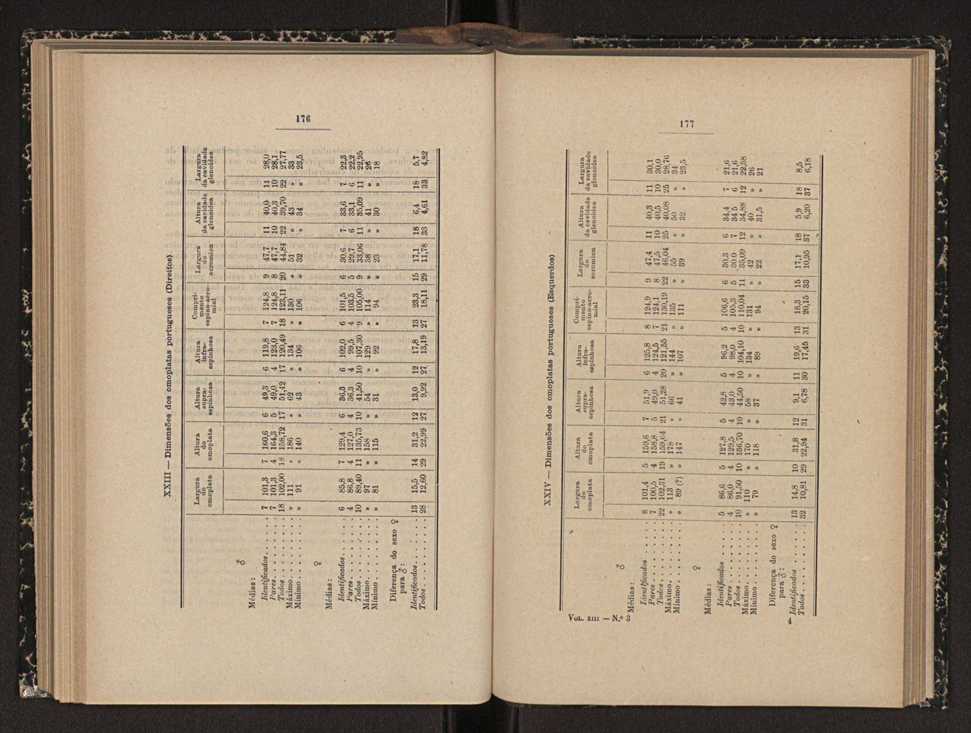 176
XXIII — Dimensões dos omoplatas portugueses (Direitos)
Largura do omoplata | Altura do omoplata | Altura supra-espinhosa | Altura infra-espinhosa | Comprimento espino-acromial | Largura do acromion | Altura da cavidade glenoidea | Largura da cavidade glenoidea
♂
Médias:
Identificados . . . 7 101,3 | 7 160,6 | 6 49,3 | 6 119,8 | 7 124,8 | 9 47,7 | 11 40,0 | 11 28,0
Pares . . . 7 101,3 | 4 164,3 | 5 49,0 | 4 123,0 | 7 124,8 | 8 47,7 | 10 40,3 | 10 28,1
Todos . . . 18 102,00 | 18 158,72 | 17 51,42 | 17 120,49 | 18 123,11 | 20 44,84 | 22 39,70 | 22 27,77
Máximo . . . » 111 | » 186 | » 62 | » 134 | » 130 | » 51 | » 43 | » 33
Mínimo . . . » 91 | » 140 | » 43 | » 106 | » 106 | » 32 | » 34 | » 23,5
♀
Médias:
Identificados . . . 6 85,8 | 7 129,4 | 6 36,3 | 6 102,0 | 6 101,5 | 6 30,6 | 7 33,6 | 7 22,3
Pares . . . 4 86,8 | 4 127,0 | 4 36,3 | 4 99,5 | 4 103,5 | 5 29,7 | 6 33,1 | 6 22,2
Todos . . . 10 89,40 | 11 135,73 | 10 41,50 | 10 107,30 | 9 105,00 | 9 33,06 | 11 35,09 | 11 22,95
Máximo . . . » 97 | » 158 | » 54 | » 129 | » 114 | » 38 | » 41 | » 26
Mínimo . . . » 81 | » 115 | » 31 | » 92 | » 94 | » 23 | » 30 | » 18
Diferença do sexo ♀ para ♂:
Identificados . . . 13 15,5 | 14 31,2 | 12 13,0 | 12 17,8 | 13 23,3 | 15 17,1 | 18 6,4 | 18 5,7
Todos . . . 28 12,60 | 29 22,99 | 27 9,92 | 27 13,19 | 27 18,11 | 29 11,78 | 33 4,61 | 33 4,82
177
XXIV — Dimensões dos omoplatas portugueses (Esquerdos)
Largura do omoplata | Altura do omoplata | Altura supra-espinhosa | Altura infra-espinhosa | Comprimento espino-acromial | Largura do acromion | Altura da cavidade glenoidea | Largura da cavidade glenoidea
♂
Médias:
Identificados . . . 8 101,4 | 5 159,6 | 7 51,9 | 6 125,8 | 8 124,9 | 9 47,4 | 11 40,3 | 11 30,1
Pares . . . 7 100,5 | 4 158,8 | 5 49,0 | 4 124,5 | 7 124,1 | 8 47,5 | 10 40,5 | 10 30,0
Todos . . . 22 102,31 | 19 159,64 | 21 51,28 | 20 121,55 | 21 130,19 | 22 46,04 | 25 40,08 | 25 28,76
Máximo . . . » 113 | » 178 | » 66 | » 144 | » 135 | » 55 | » 50 | » 34
Mínimo . . . » 89 (?) | » 147 | » 41 | » 107 | » 111 | » 39 | » 32 | » 23,5
♀
Médias:
Identificados . . . 5 86,6 | 5 127,8 | 5 42,8 | 5 96,2 | 5 106,6 | 6 30,3 | 6 34,4 | 7 21,6
Pares . . . 4 86,0 | 4 129,5 | 4 43,0 | 4 98,0 | 4 105,3 | 5 30,0 | 7 34,5 | 6 21,6
Todos . . . 10 91,50 | 10 136,70 | 10 44,50 | 10 104,10 | 10 110,04 | 11 35,09 | 12 34,88 | 12 22,58
Máximo . . . » 110 | » 170 | » 58 | » 134 | » 131 | » 42 | » 40 | » 26
Mínimo . . . » 79 | » 118 | » 37 | » 89 | » 94 | » 22 | » 31,5 | » 21
Diferença do sexo ♀ para ♂:
Identificados . . . 13 14,8 | 10 31,8 | 12 9,1 | 11 19,6 | 13 18,3 | 15 17,1 | 18 5,9 | 18 8,5
Todos . . . 32 10,81 | 29 22,94 | 31 6,78 | 30 17,45 | 31 20,15 | 33 10,95 | 37 6,20 | 37 6,18
Vol. XIII — N.º 3